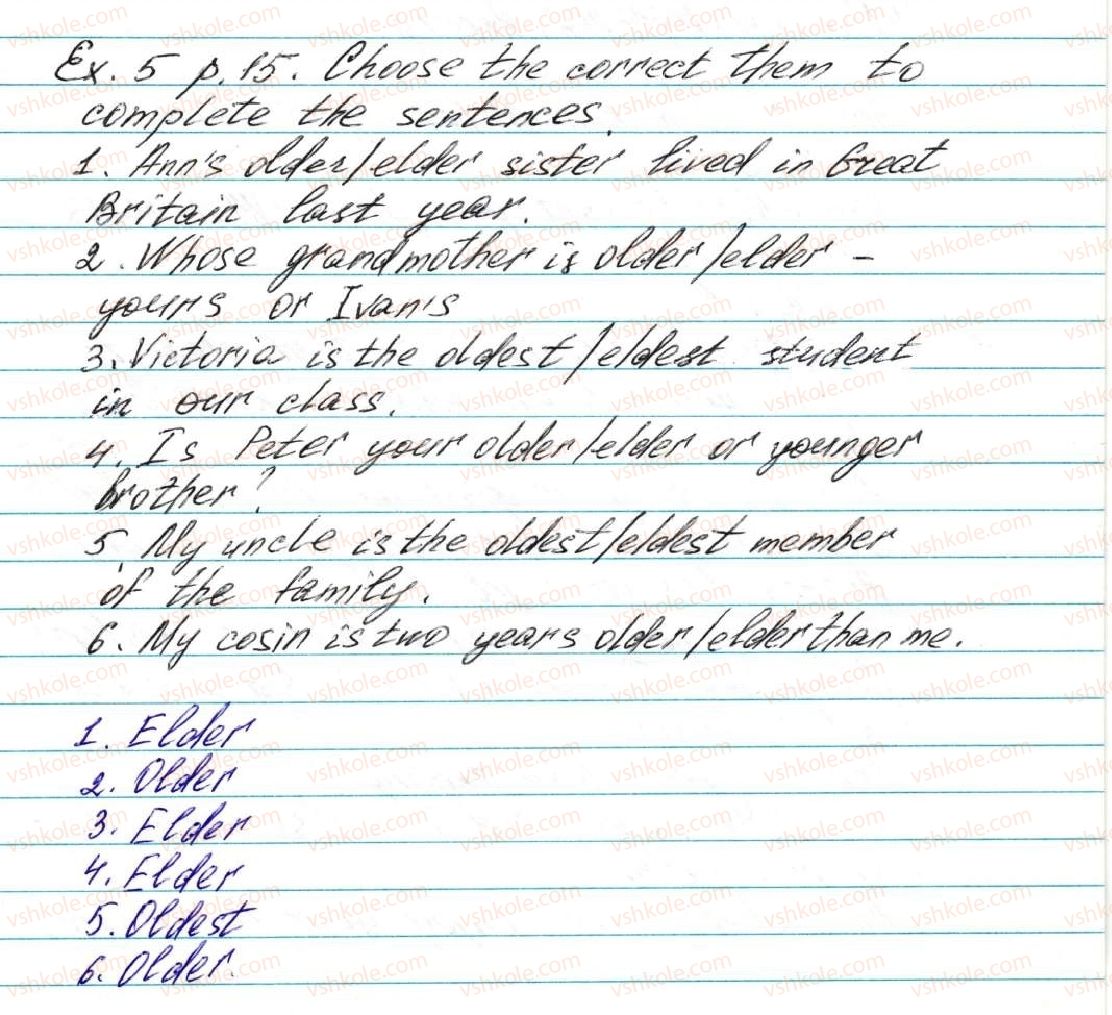 Ex. 5 p. 15. Choose the correct them to
complete the sentences.
1. Ann's older/elder sister lived in Great
Britain last year.
2. Whose grandmother is older/elder -
yours or Ivan's
3. Victoria is the oldest/eldest student
in our class.
4. Is Peter your older/elder or younger
brother?
5. My uncle is the oldest/eldest member
of the family.
6. My cosin is two years older/elder than me.
1. Elder
2. Older
3. Elder
4. Elder
5. Oldest
6. Older.